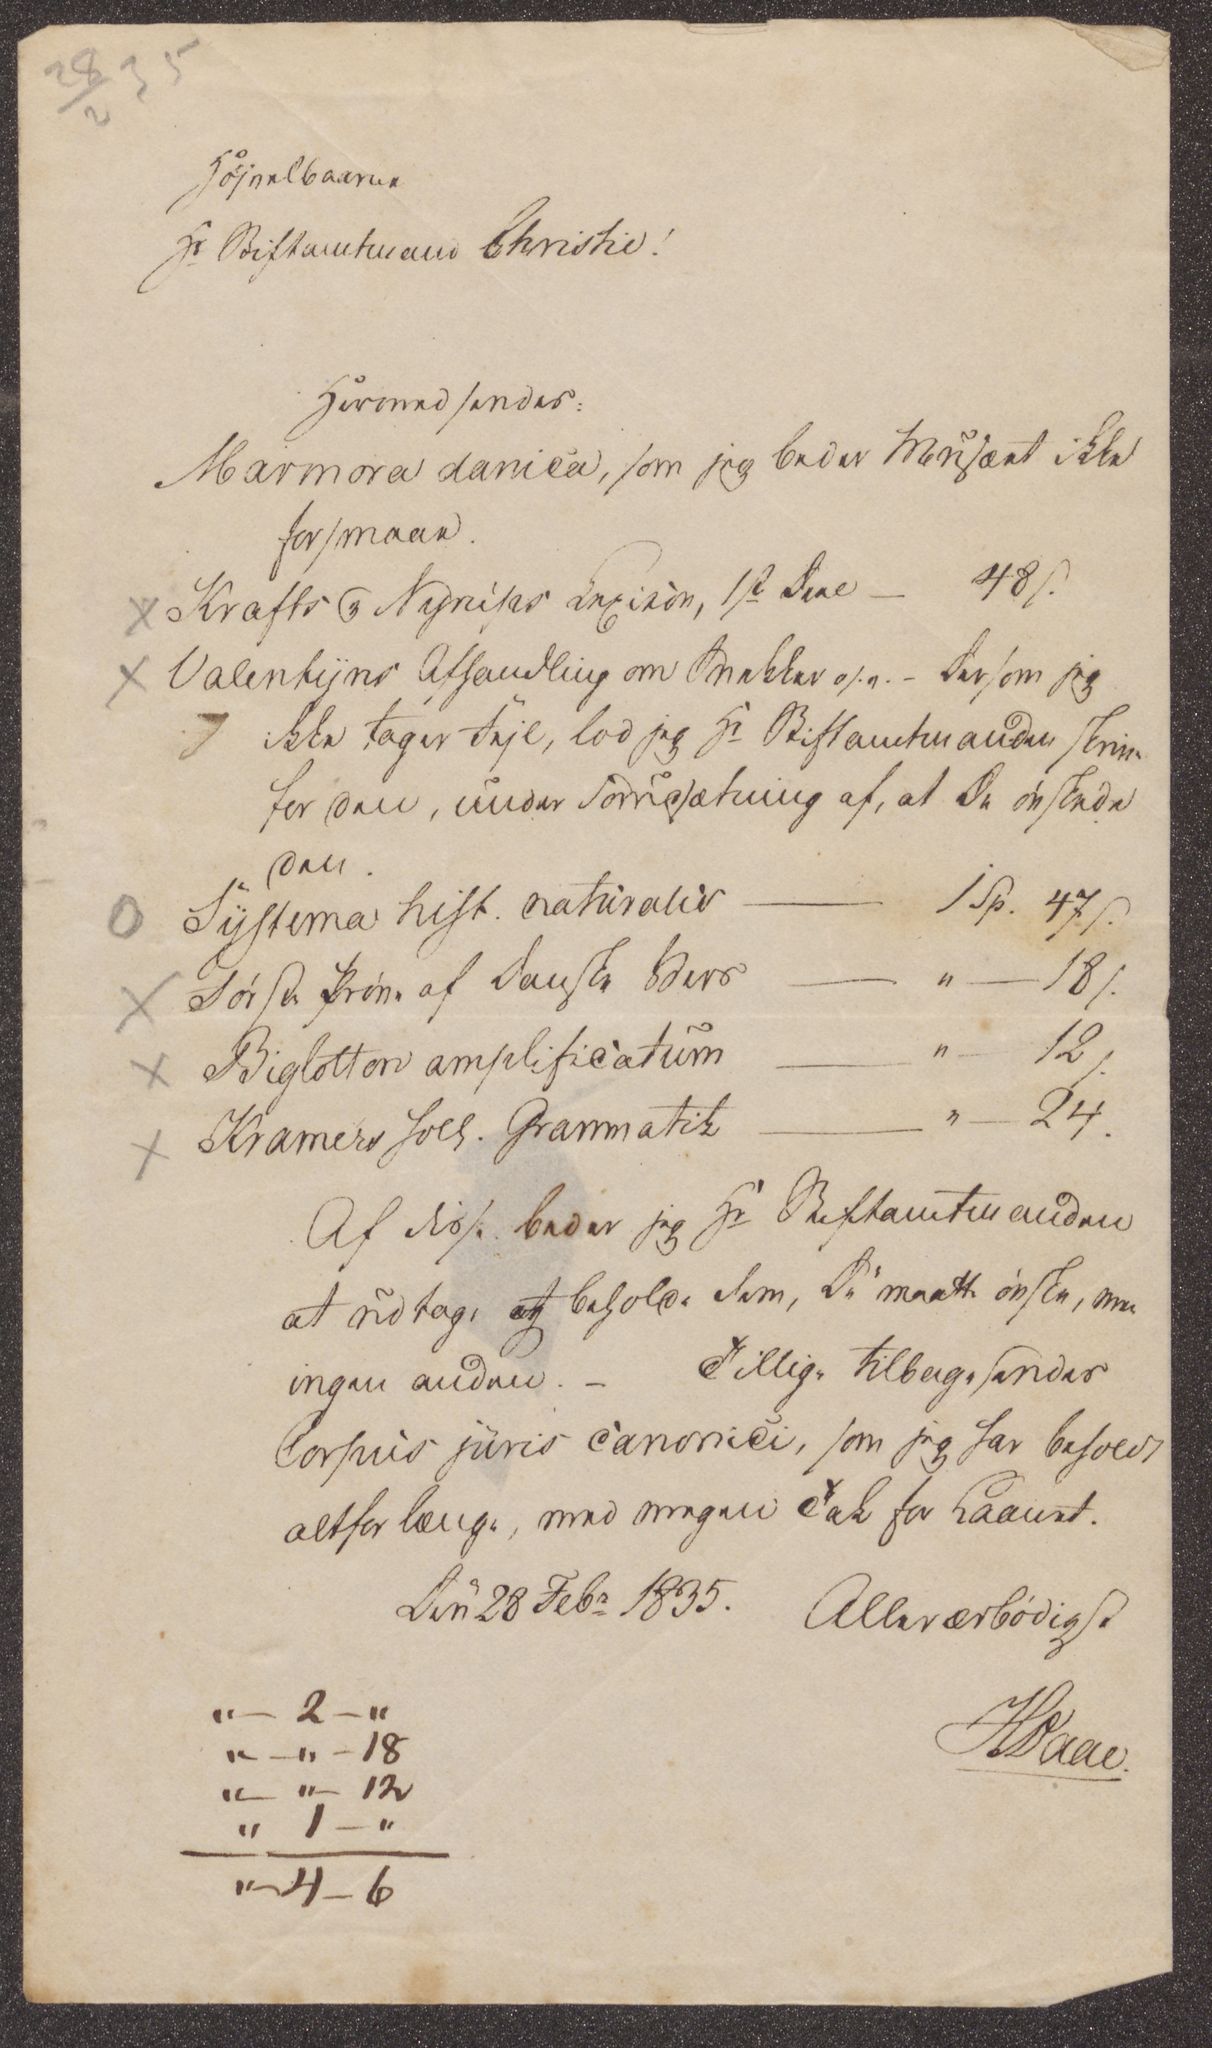 28/2 35
Höjvelbaarne
Hr Stiftamtmand Christie!
Hermed sendes:
Marmora danica, som jeg beder Musæet ikke
forsmaae.
Krafts og Nyrups Lexicon, 1ste Deel — 48 s.
Valentijns Afhandling om Snekker o.s.v. – Dersom jeg
ikke tager Fejl, lod jeg Hr Stiftamtmanden skrive
for den, under Forudsætning af, at De önskede
den.
Systema hist. naturalis — 1 Sp. 47 s.
Förste Pröve af Danske Vers — " — 18 s.
Biglotton amplificatum — " — 12 s.
Kramers holl. Grammatik — " — 24.
Af disse beder jeg Hr Stiftamtmanden
at udtage og beholde dem, De maatte önske, men
ingen anden. – Tillige tilbagesendes
Corpus juris canonici, som jeg har beholdt
altfor længe, med megen Tak for Laanet.
Den 28 Febr 1835. Allerærbödigst
"— 2 —"
"— " — 18
"— " — 12
" 1 — "
"— 4 — 6